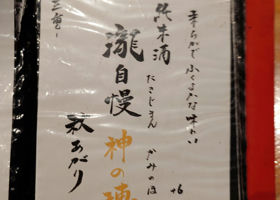 柔らかでふくよかな味わい
純米酒
たきじまん かみのほ
瀧自慢 神の穂
秋あがり
三重